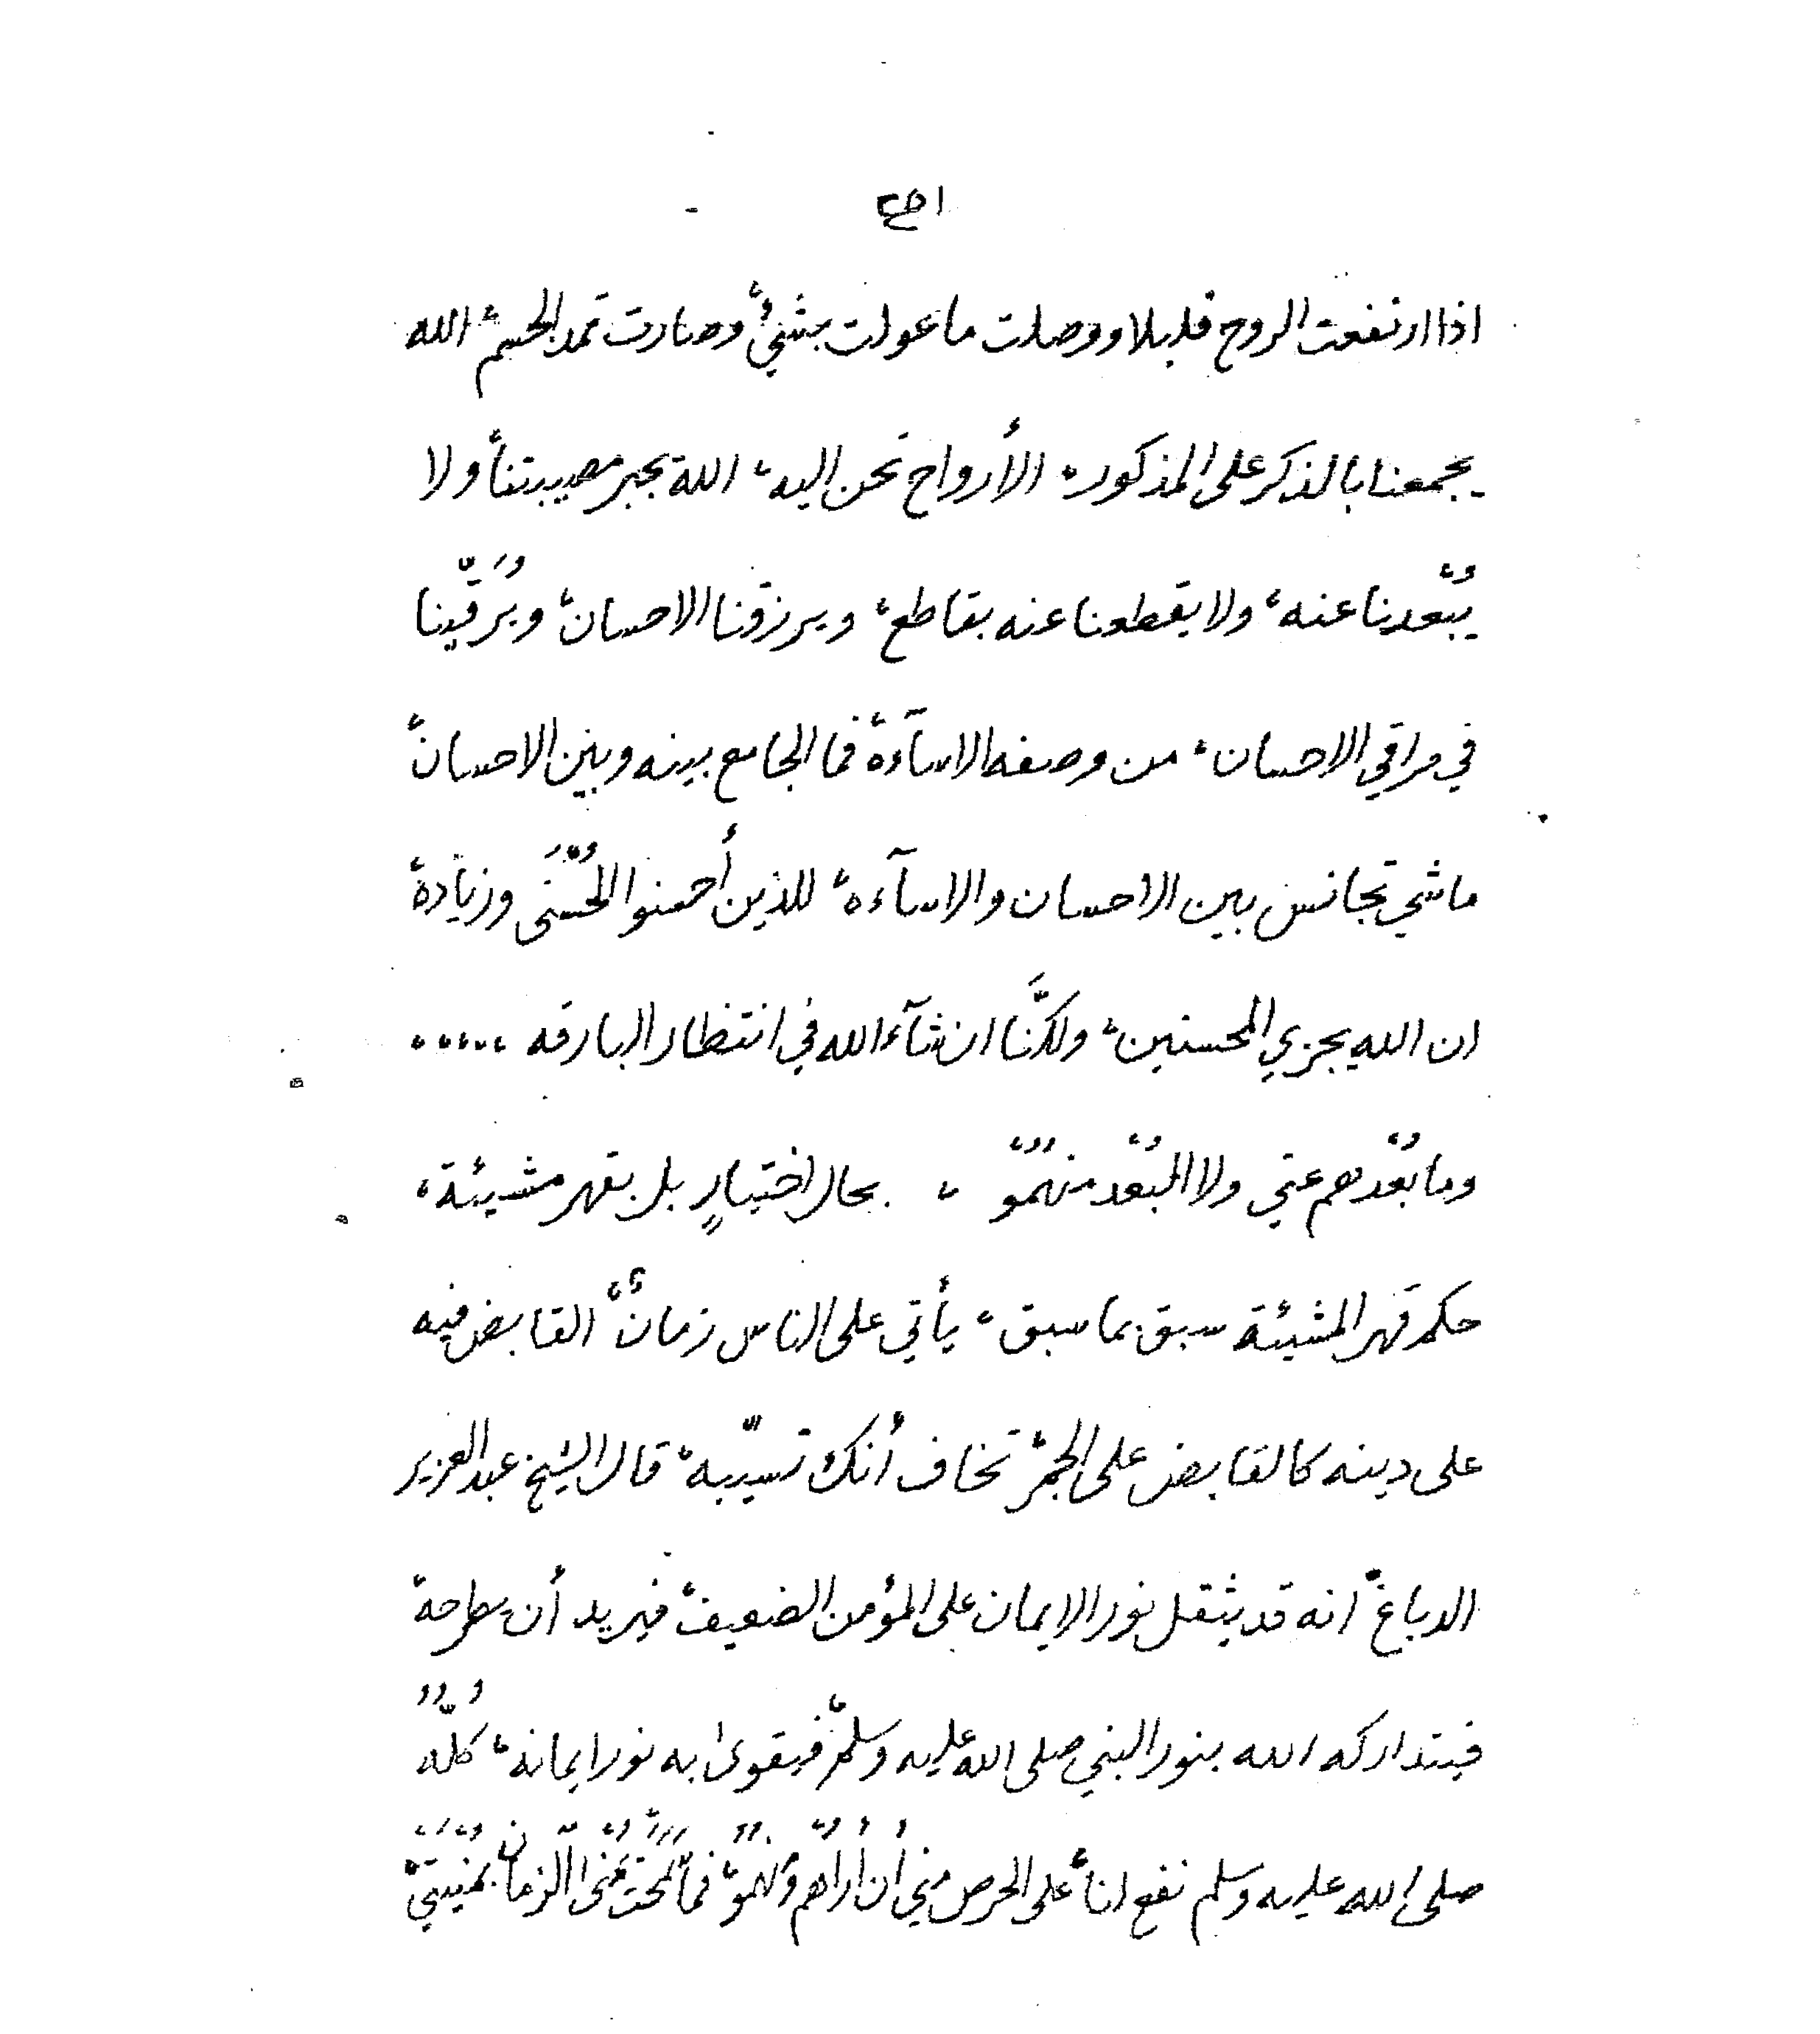 اذا ارتفعت الروح قليلا ووصلت ما عولت بشيء وصارت تمد الجسم، الله
يجمعنا بالذكر على المذكور، الأرواح تحن اليه، الله يجبر مصيبتنا، ولا
يُبْعدنا عنه، ولا يقطعنا عنه بقاطع، ويرزقنا الاحسان، ويُرَقّينا
في مراقي الاحسان، من وصفه الاسآءة فما الجامع بينه وبين الاحسان،
ماشي تجانس بين الاحسان والاسآءه، للذين أحسنوا الحُسْنَى وزيادة،
ان الله يجزي المحسنين، ولكنَّا ان شآء الله في انتظار البارقه ،،،،،
وما بُعْدهم عني ولا البُعْد منهُمُو ، بحال اختيارٍ بل بقهر مشيئة،
حكم قهر المشيئة سبق بما سبق، يأتي على الناس زمانٌ، القابض فيه
على دينه كالقابض على الجمر، تخاف أنك تسيّبه، قال الشيخ عبد العزيز
الدباغ، انه قد يثقل نور الإيمان على المؤمن الضعيف، فيريد أن يطرحه
فيتداركه الله بنور النبي صلى الله عليه وسلم، فيقوى به نور ايمانه، كلّه
صلى الله عليه وسلم نفع انا، على الحرص مني أن أراهم فما الزمان